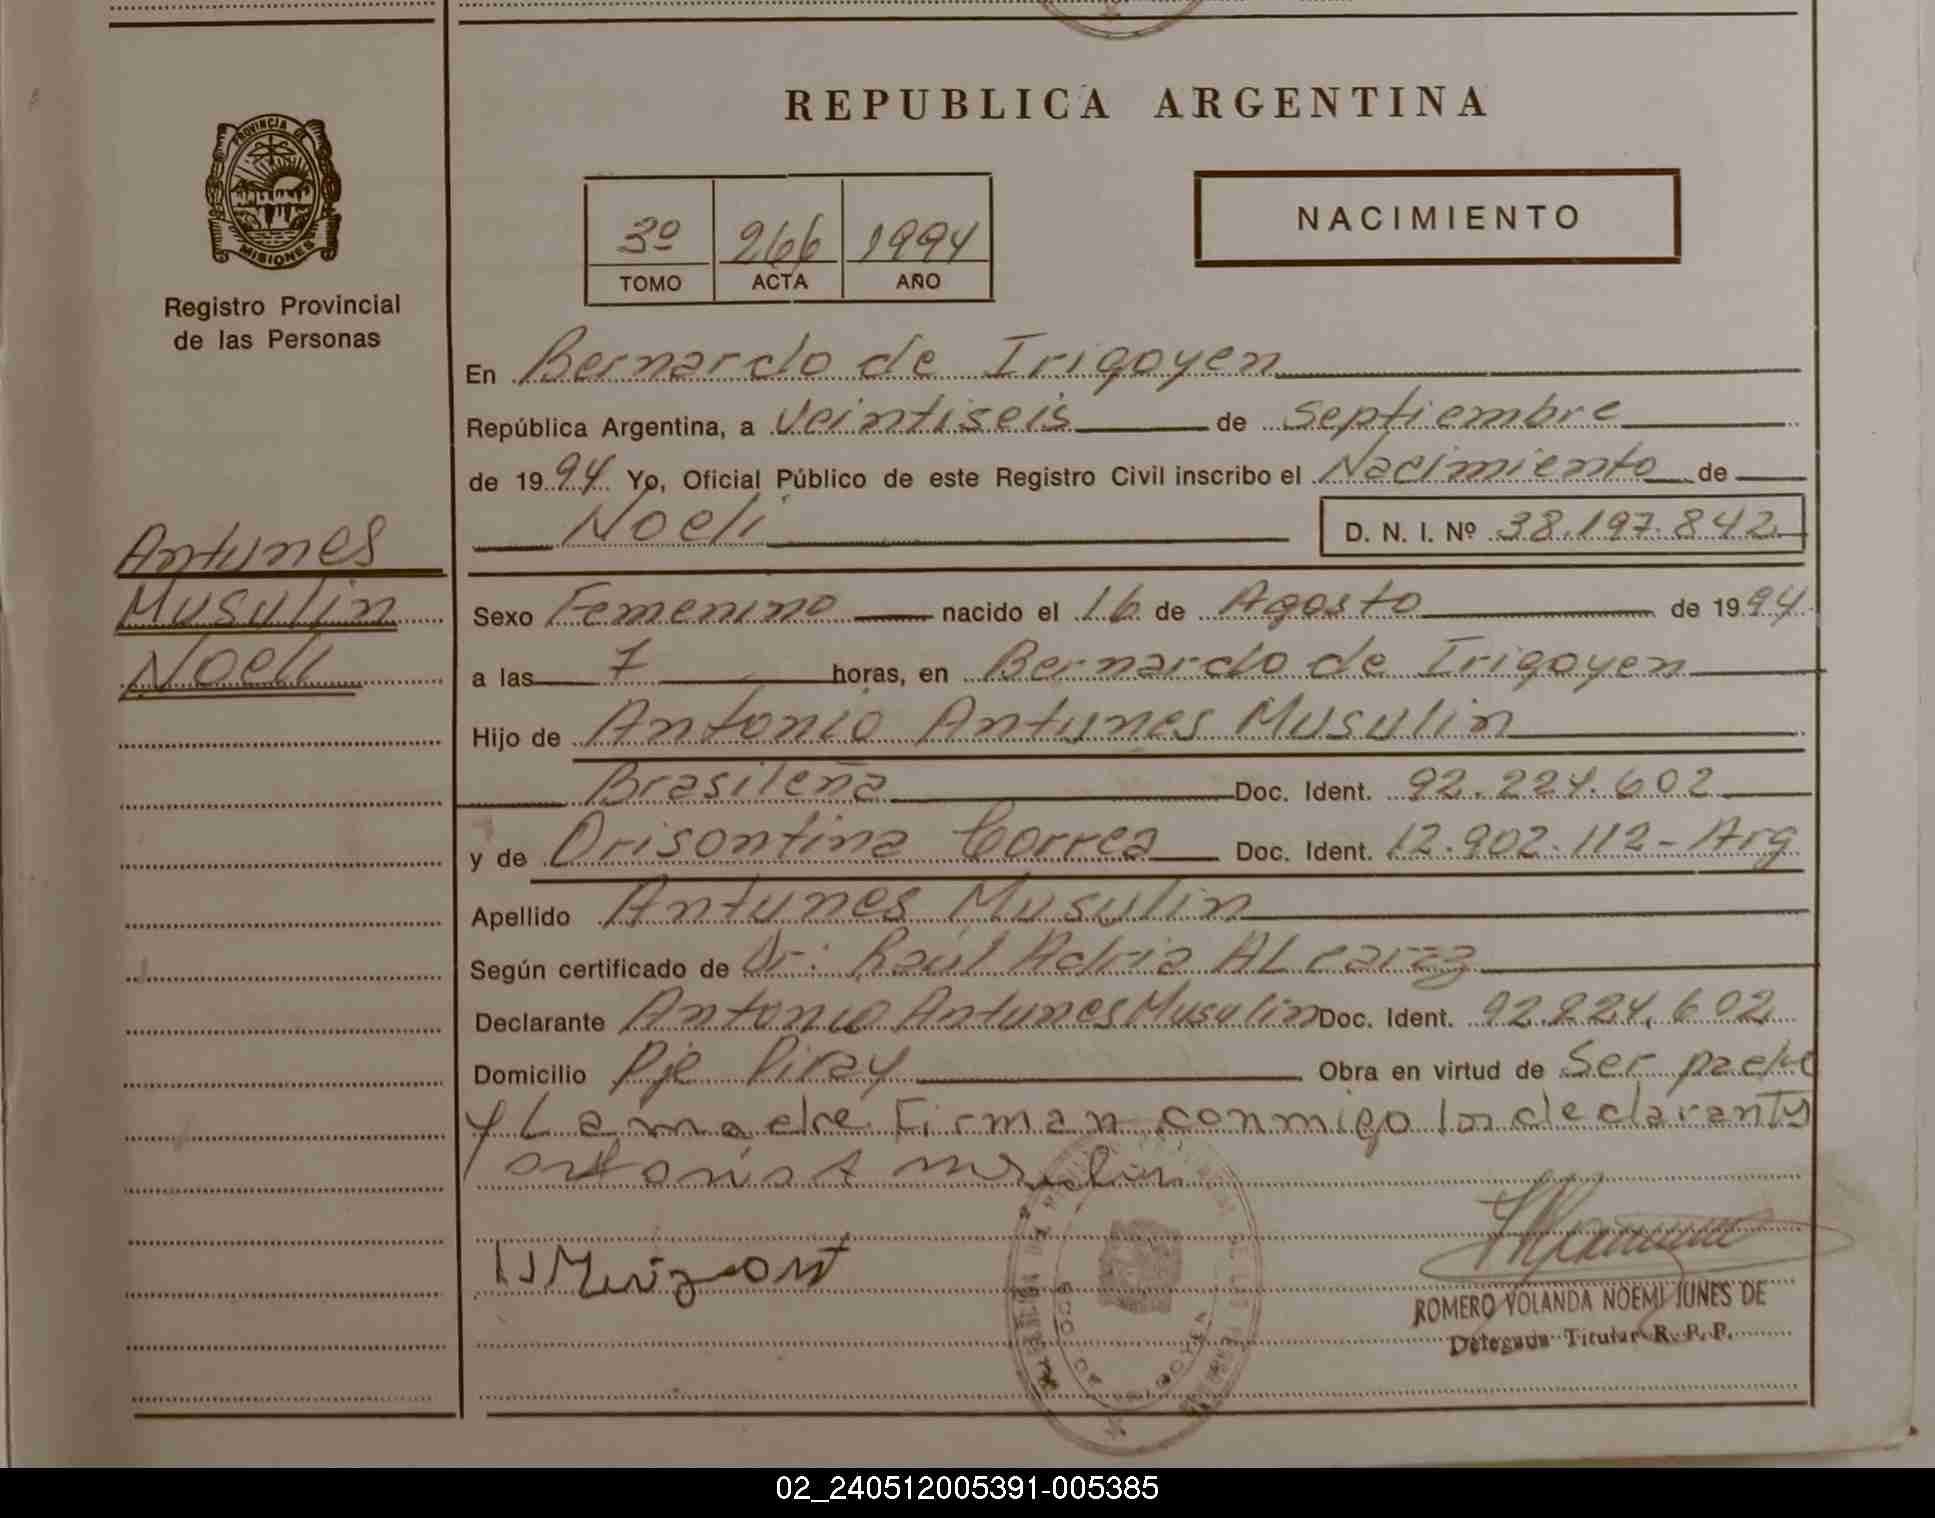 REPUBLICA ARGENTINA
PROVINCIA DE
MISIONES
Registro Provincial
de las Personas
3º 266 1994
TOMO ACTA AÑO
NACIMIENTO
En Bernardo de Irigoyen
República Argentina, a Veintiseis de Septiembre
de 1994 Yo, Oficial Público de este Registro Civil inscribo el Nacimiento de
Noeli D. N. I. Nº 38.197.842
Antunes
Musulin
Noeli
Sexo Femenino nacido el 16 de Agosto de 1994
a las 7 horas, en Bernardo de Irigoyen
Hijo de Antonio Antunes Musulin
Brasileña Doc. Ident. 92.224.602
y de Orisontina Correa Doc. Ident. 12.902.112-Arg
Apellido Antunes Musulin
Según certificado de Dr: Raúl Adria
Declarante Antonio Antunes Musulin Doc. Ident. 92.224.602
Domicilio Pje Piray Obra en virtud de Ser padre
y La madre Firman conmigo los declarantes
ROMERO YOLANDA NOEMI IUNES DE
Delegada Titular R. P. P.
02_240512005391-005385